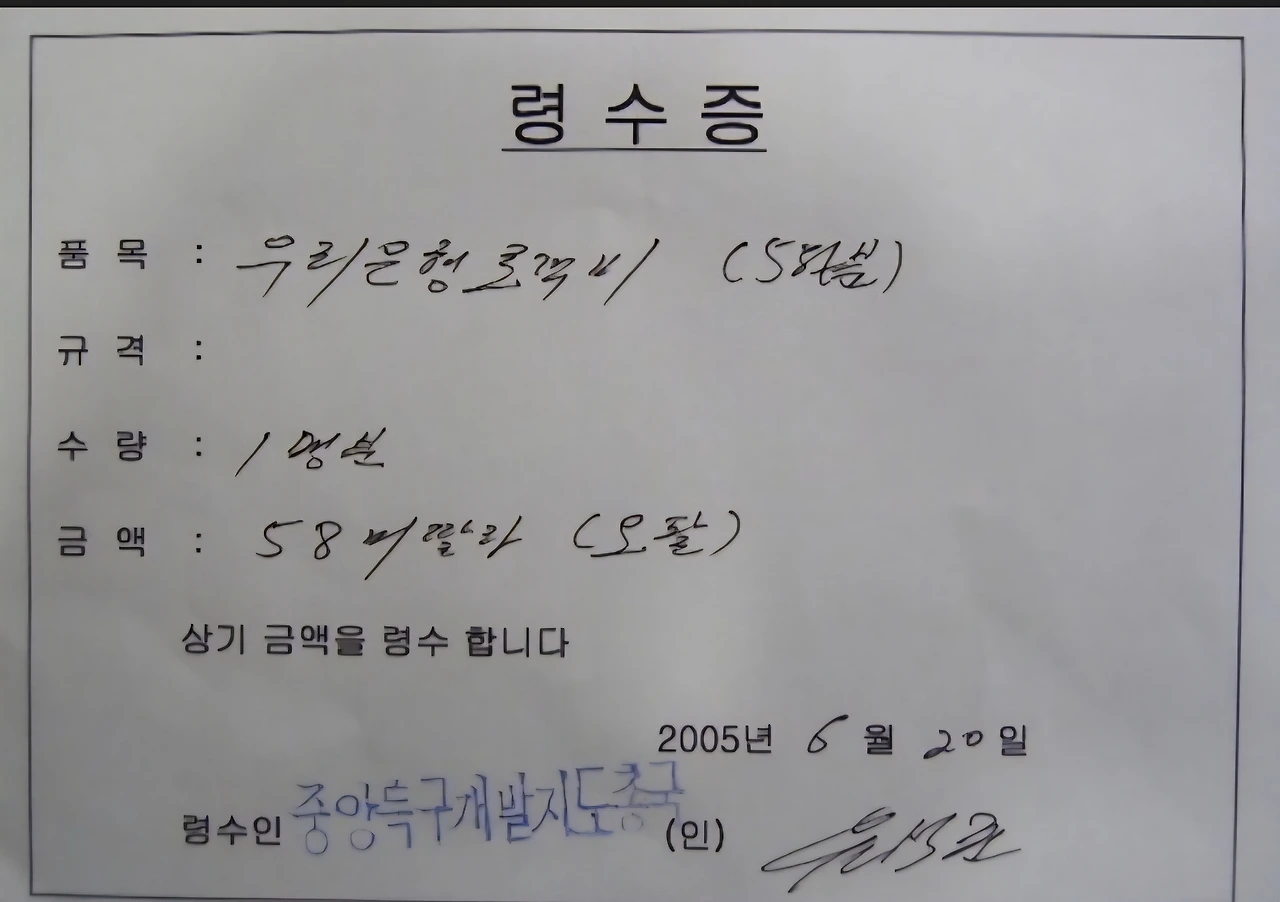 령 수 증
품 목 : 우리은행 로객비 (5월분)
규 격 :
수 량 : 1명분
금 액 : 58 미딸라 (오팔)
상기 금액을 령수 합니다
2005년 6월 20일
령수인 중앙특구개발지도총국 (인)